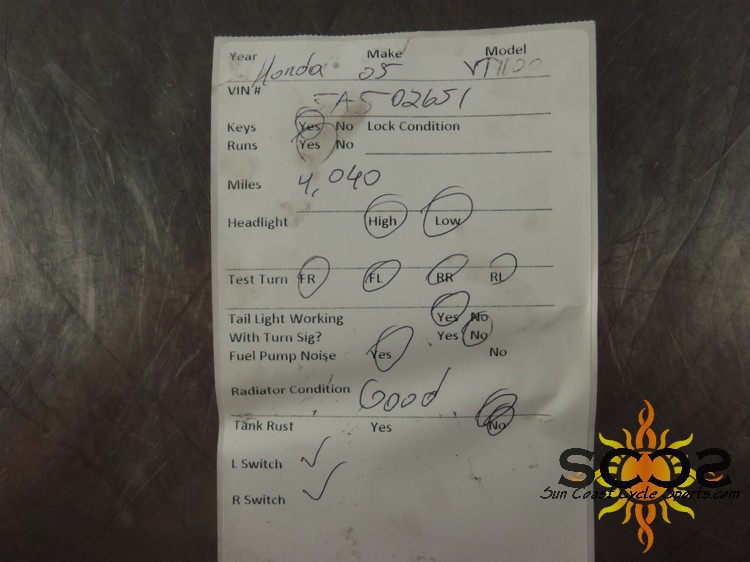 Year Make Model
Honda 05 VT1100
VIN #
5A502651
Keys Yes No Lock Condition
Runs Yes No
Miles 4,040
Headlight High Low
Test Turn FR FL RR RL
Tail Light Working Yes No
With Turn Sig? Yes No
Fuel Pump Noise Yes No
Radiator Condition Good
Tank Rust Yes No
L Switch ✓
R Switch ✓
SCCS
Sun Coast Cycle Sports.com